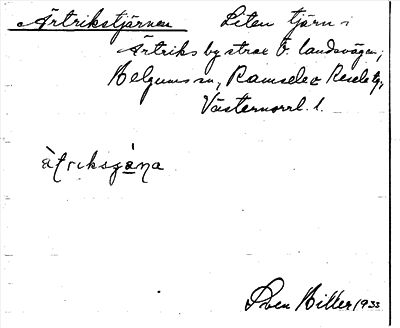 Ärtrikstjärnen Liten tjärn i
Ärtriks by strax Ö. landsvägen,
Helgums sn, Ramsele o Resele tg,
Västernorrl. l.
àtriksɟàna
Sven Hiller 1933